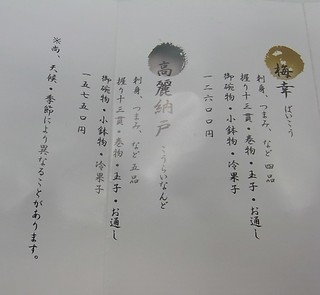 梅幸 ばいこう
刺身、つまみ、など四品
握り十三貫・巻物・玉子・お通し
御碗物・小鉢物・冷果子
一二六〇〇円
高麗納戸 こうらいなんど
刺身、つまみ、など五品
握り十三貫・巻物・玉子・お通し
御碗物・小鉢物・冷果子
一五七五〇円
※尚、天候・季節により異なることがあります。